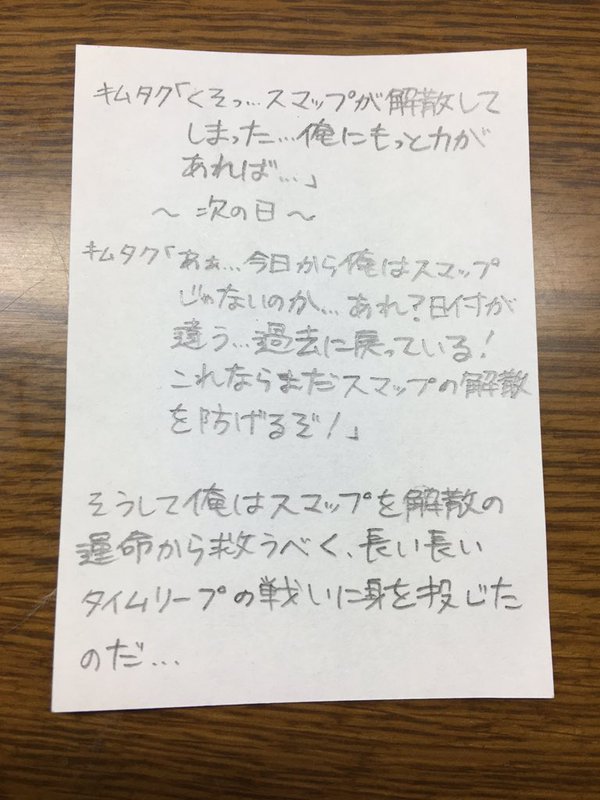 キムタク「くそっ…スマップが解散して
しまった…俺にもっと力が
あれば…」
～次の日～
キムタク「あぁ…今日から俺はスマップ
じゃないのか…あれ?日付が
違う…過去に戻っている!
これならまだスマップの解散
を防げるぞ!」
そうして俺はスマップを解散の
運命から救うべく、長い長い
タイムリープの戦いに身を投じた
のだ…